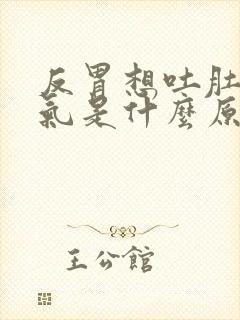 反胃想吐肚
氣是什麼原
王公館